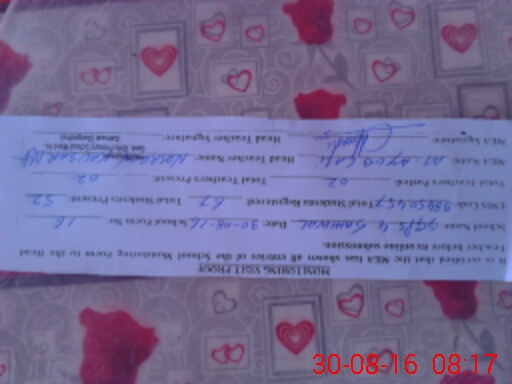 MONITORING VISIT PROOF
It is certified that the MEA has shown all entries of the School Monitoring Form to the Head
Teacher before its online submission.
School Name: Date: 30-08-16 School Form No. 16
EMIS Code: 38450457 Total Students Registered: 67 Total Students Present: 52
Total Teachers Posted: 02 Total Teachers Present: 02
MEA Name: Head Teacher Name:
MEA Signature: Head Teacher Signature:
30-08-16 08:17